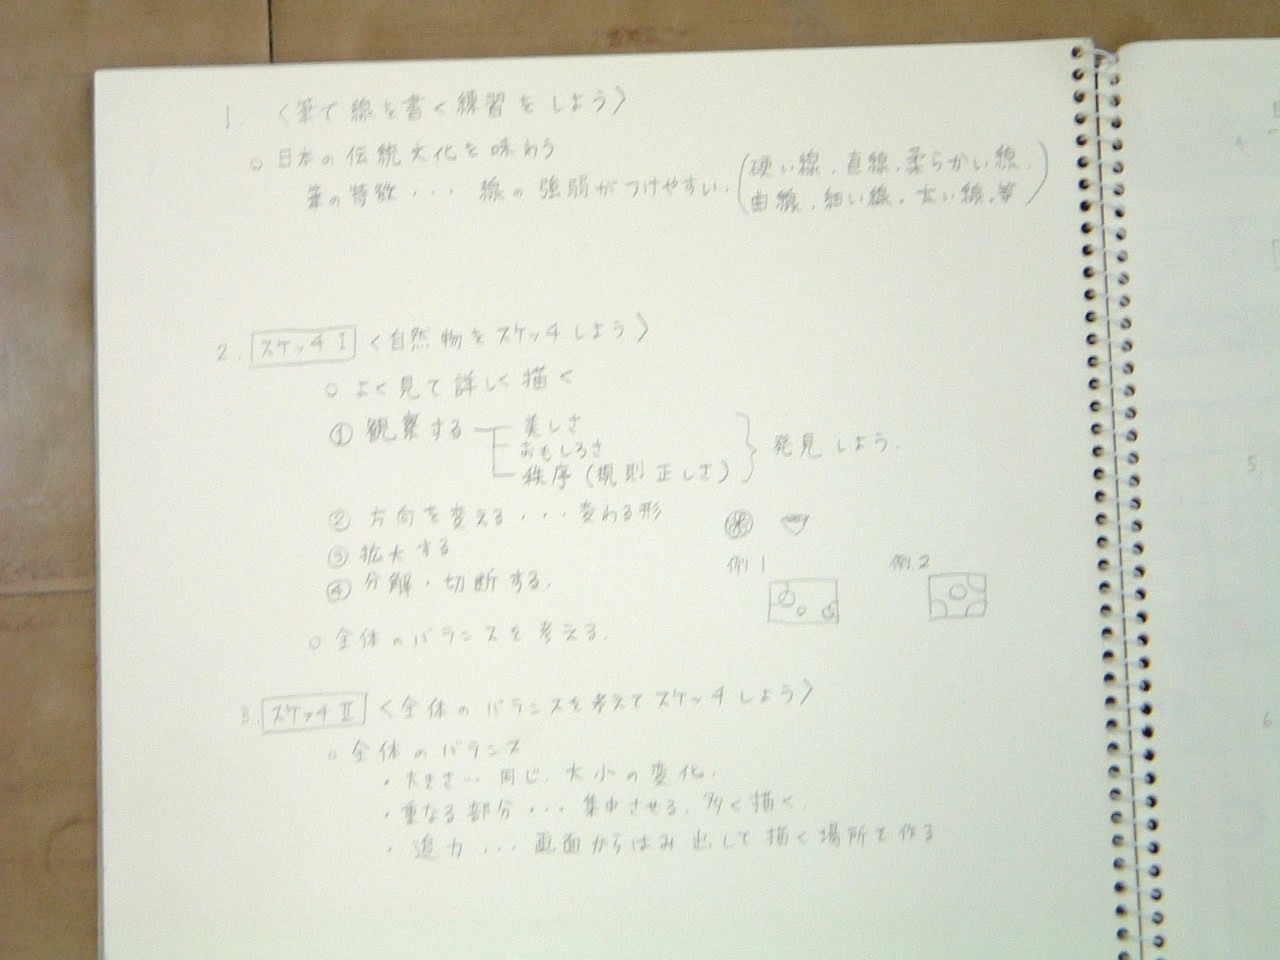 1. 〈筆で線を書く練習をしよう〉
○ 日本の伝統文化を味わう
筆の特徴・・・ 線の強弱がつけやすい。(硬い線、直線、柔らかい線、
曲線、細い線、太い線、等)
2. スケッチⅠ 〈自然物をスケッチしよう〉
○ よく見て詳しく描く
① 観察する
美しさ
おもしろさ
秩序(規則正しさ)
発見しよう。
② 方向を変える・・・変わる形
③ 拡大する
④ 分解・切断する。
例.1
例.2
○ 全体のバランスを考える。
3. スケッチⅡ 〈全体のバランスを考えてスケッチしよう〉
○ 全体のバランス
・大きさ… 同じ、大小の変化。
・重なる部分・・・集中させる、多く描く。
・迫力・・・画面からはみ出して描く場所を作る
5.
6